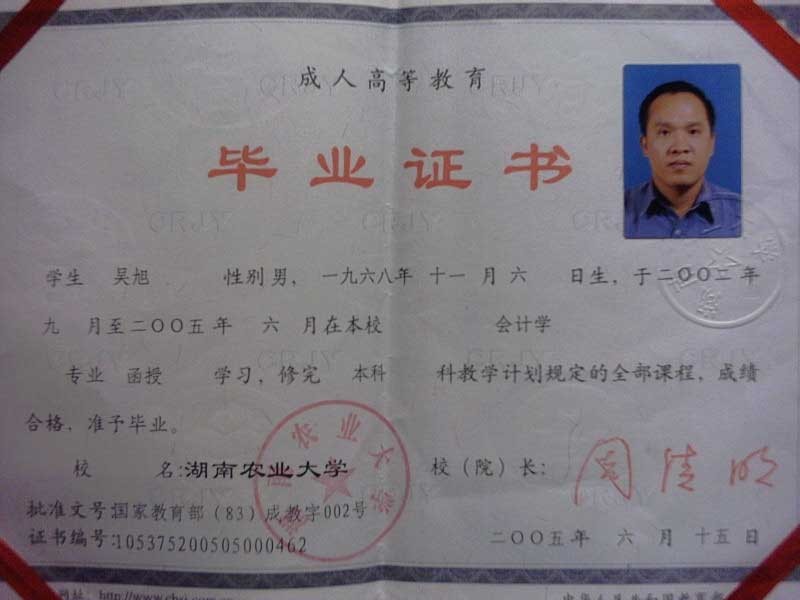 成人高等教育
毕业证书
学生 吴旭 性别男，一九六八年 十一 月 六 日生，于二〇〇二年
九 月至二〇〇五年 六 月在本校 会计学
专业 函授 学习，修完 本科 科教学计划规定的全部课程，成绩
合格，准予毕业。
校 名:湖南农业大学 校（院）长： 周清明
批准文号:国家教育部（83）成教字002号
证书编号:105375200505000462 二〇〇五年 六 月 十五 日
网址: http://www.chsi.com.cn 中华人民共和国教育部